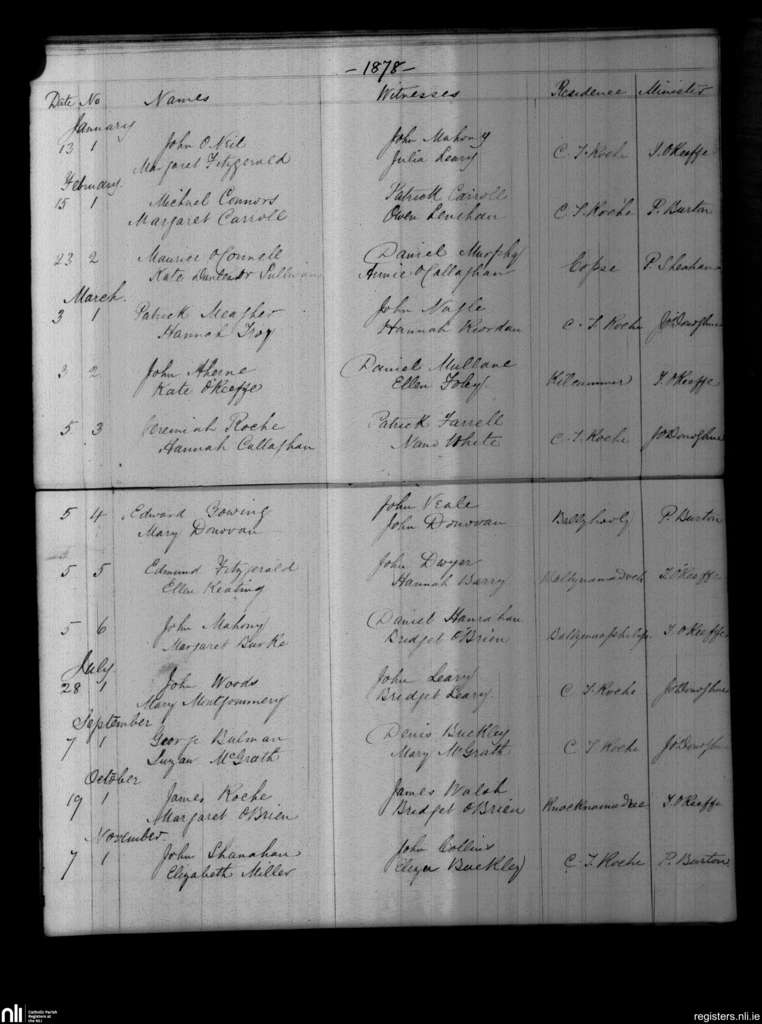 - 1878 -
Date No Names Witnesses Residence Minister
January
13 1 John O Neil John Mahony
Margaret Fitzgerald Julia Leary C. T. Roche T. O Keeffe
February
15 1 Michael Connors Patrick Carroll
Margaret Carroll Owen Lenehan C. T. Roche P. Burton
23 2 Maurice O Connell Daniel Murphy
Kate Sullivan Annie O Callaghan Copse P. Sheehan
March
3 1 Patrick Meagher John Nagle
Hannah Troy Hannah Riordan C. T. Roche J O'Donoghue
3 2 John Aherne Daniel Mullane
Kate O'Keeffe Ellen Foley Kilcummer T. O Keeffe
5 3 Jeremiah Roche Patrick Farrell
Hannah Callaghan Nano White C. T. Roche J O'Donoghue
5 4 Edward Gowing John Veale
Mary Donovan John Donovan Ballyhooly P. Burton
5 5 Edmund Fitzgerald John Dwyer
Ellen Keating Hannah Barry T. O'Keeffe
5 6 John Mahony Daniel Hanrahan
Margaret Burke Bridget O'Brien T. O Keeffe
July
28 1 John Woods John Leary
Mary Montgommery Bridget Leary C T. Roche J O'Donoghue
September
7 1 George Bulman Denis Buckley
Suzan McGrath Mary McGrath C T Roche J O'Donoghue
October
19 1 James Roche James Walsh
Margaret O Brien Bridget O Brien T. O Keeffe
November
7 1 John Shanahan John Collins
Elizabeth Miller Eliza Buckley C. T. Roche P. Burton
nli Catholic Parish
Registers at
the NLI
registers.nli.ie